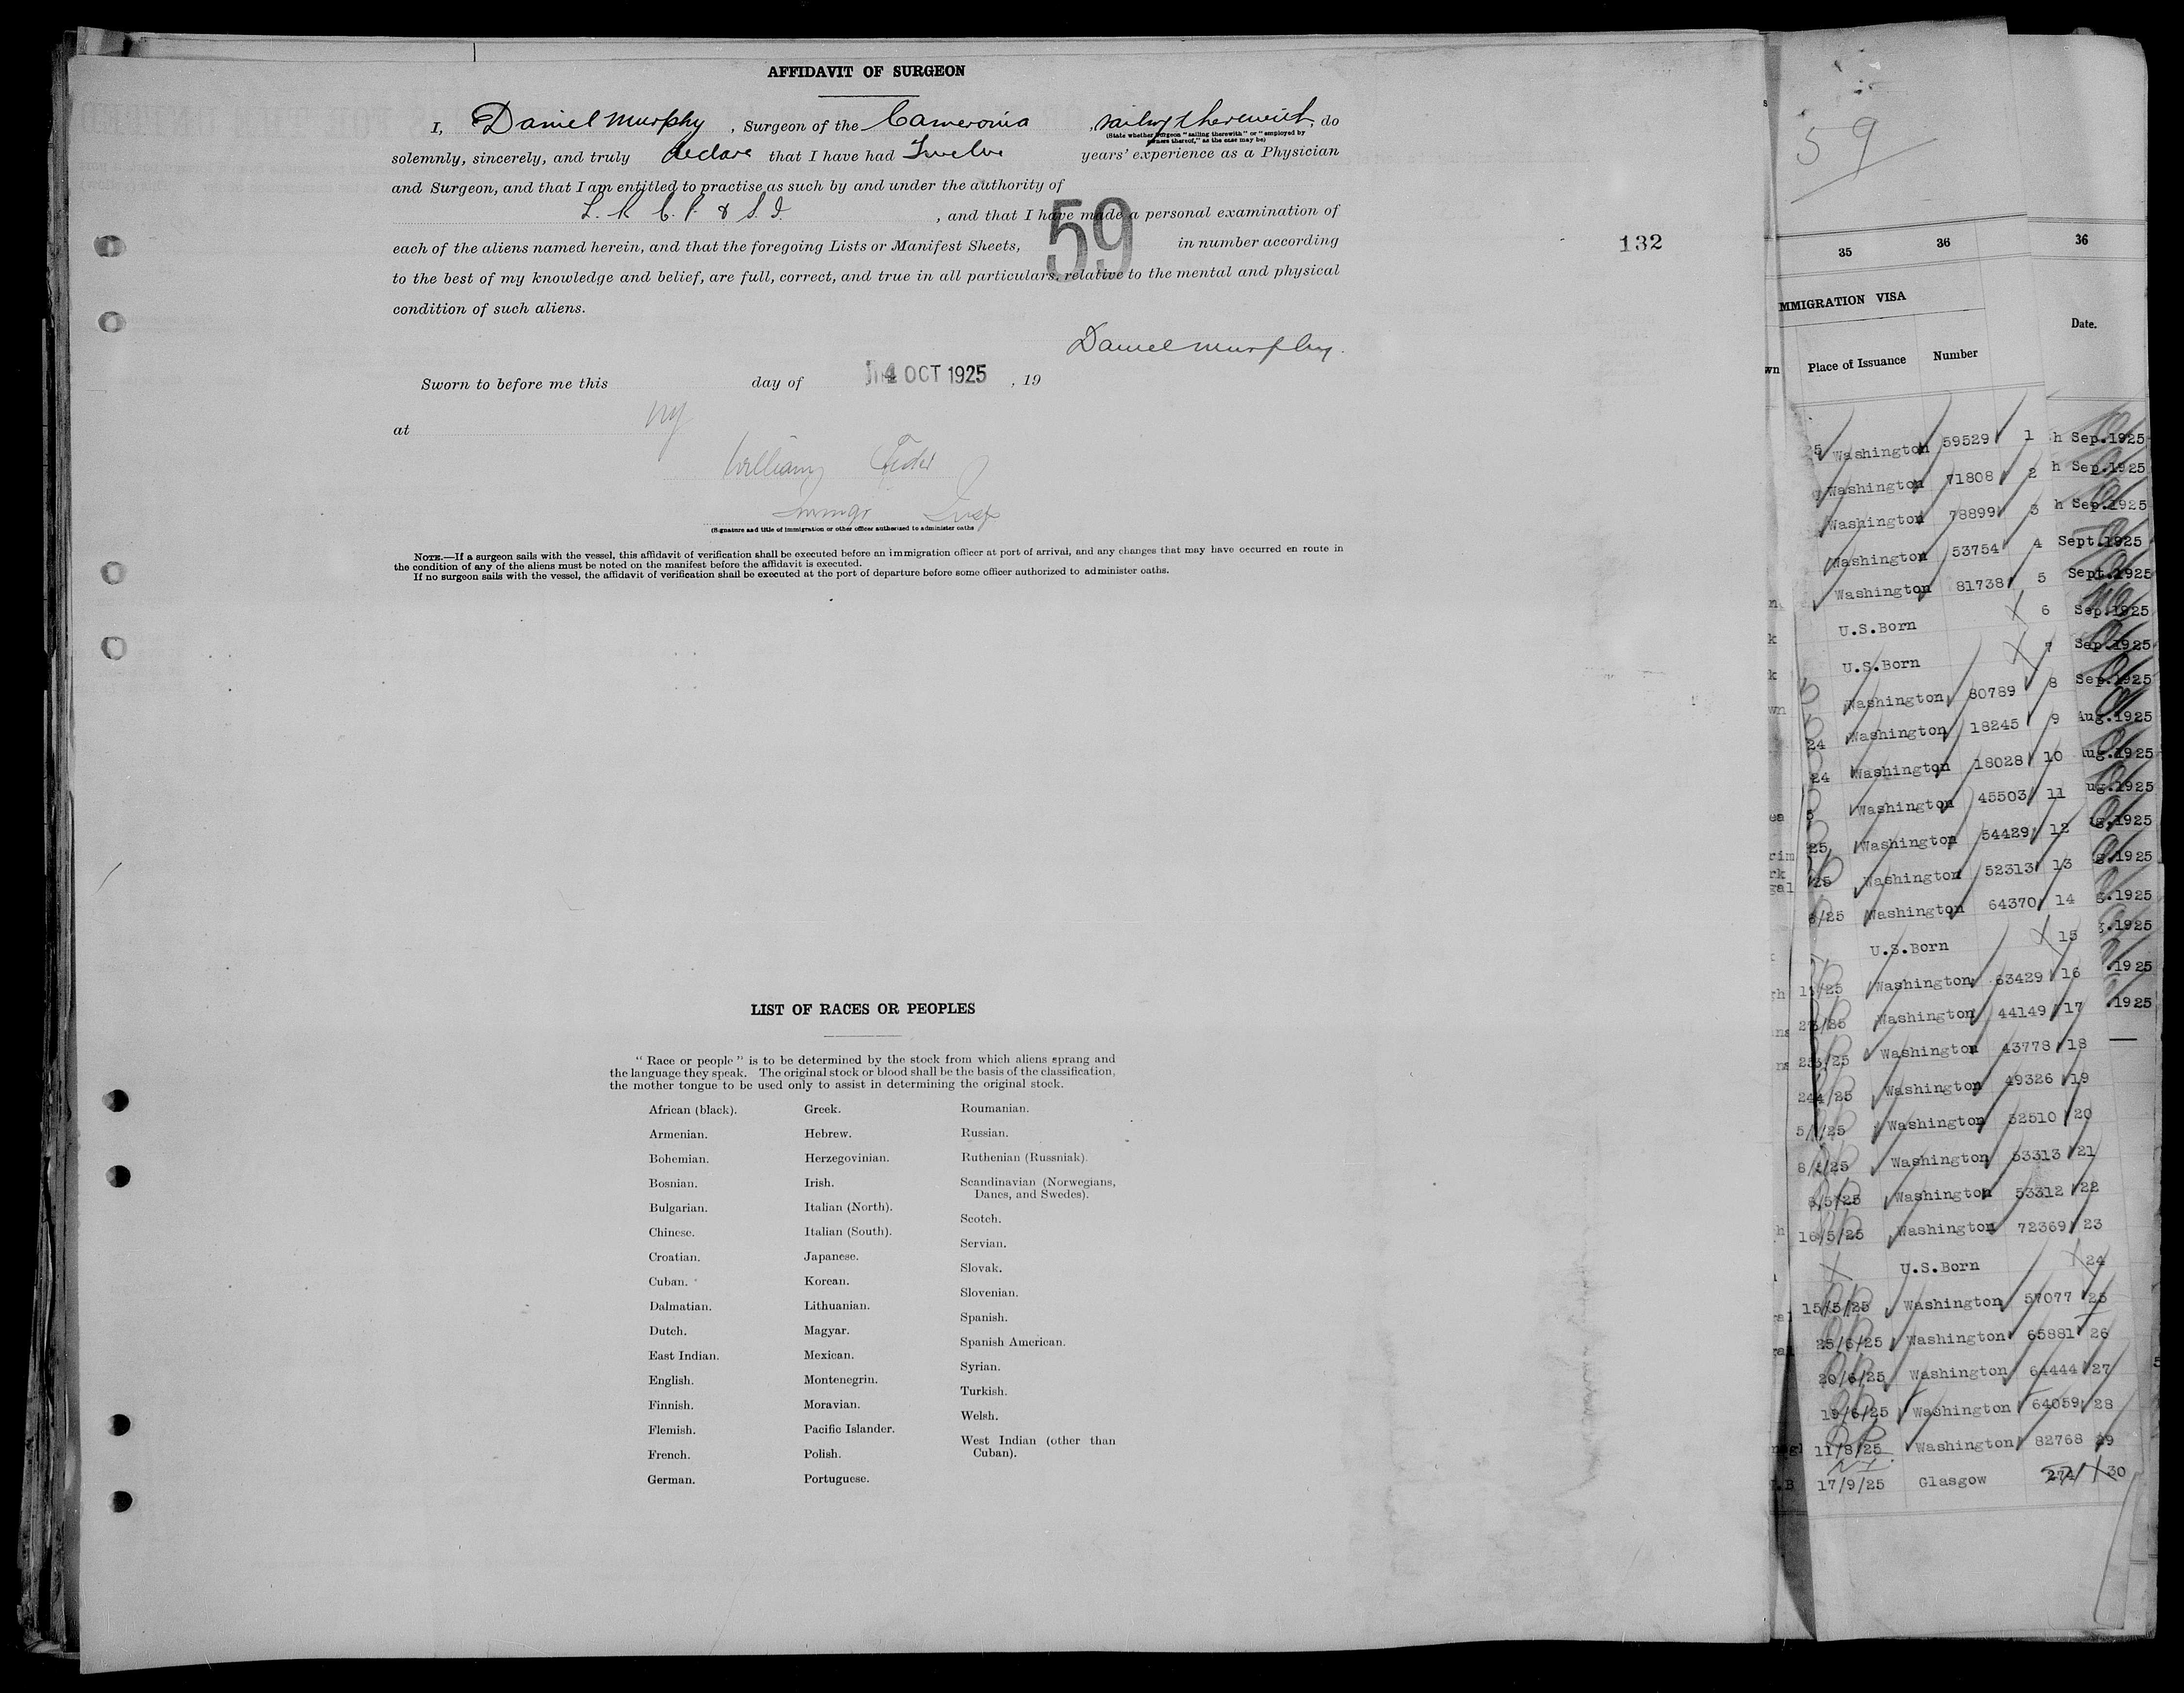 AFFIDAVIT OF SURGEON
I, Daniel Murphy, Surgeon of the Cameronia, sailing therewith, do
(State whether Surgeon "sailing therewith" or "employed by
owners thereof," as the case may be)
solemnly, sincerely, and truly declare that I have had Twelve years' experience as a Physician
and Surgeon, and that I am entitled to practise as such by and under the authority of
L. R. C. P. & S. I. , and that I have made a personal examination of
each of the aliens named herein, and that the foregoing Lists or Manifest Sheets, 59 in number according
to the best of my knowledge and belief, are full, correct, and true in all particulars, relative to the mental and physical
condition of such aliens.
Daniel Murphy.
Sworn to before me this day of 4 OCT 1925 , 19
at NY
William
Immgr Insp
(Signature and title of immigration or other officer authorized to administer oaths
NOTE.—If a surgeon sails with the vessel, this affidavit of verification shall be executed before an immigration officer at port of arrival, and any changes that may have occurred en route in
the condition of any of the aliens must be noted on the manifest before the affidavit is executed.
If no surgeon sails with the vessel, the affidavit of verification shall be executed at the port of departure before some officer authorized to administer oaths.
132
LIST OF RACES OR PEOPLES
" Race or people " is to be determined by the stock from which aliens sprang and
the language they speak. The original stock or blood shall be the basis of the classification,
the mother tongue to be used only to assist in determining the original stock.
African (black).
Armenian.
Bohemian.
Bosnian.
Bulgarian.
Chinese.
Croatian.
Cuban.
Dalmatian.
Dutch.
East Indian.
English.
Finnish.
Flemish.
French.
German.
Greek.
Hebrew.
Herzegovinian.
Irish.
Italian (North).
Italian (South).
Japanese.
Korean.
Lithuanian.
Magyar.
Mexican.
Montenegrin.
Moravian.
Pacific Islander.
Polish.
Portuguese.
Roumanian.
Russian.
Ruthenian (Russniak).
Scandinavian (Norwegians,
Danes, and Swedes).
Scotch.
Servian.
Slovak.
Slovenian.
Spanish.
Spanish American.
Syrian.
Turkish.
Welsh.
West Indian (other than
Cuban).
59
35 36 36
MMIGRATION VISA
Place of Issuance Number Date.
Washington 59529 1 h Sep.1925
Washington 71808 2 h Sep.1925
Washington 78899 3 h Sep.1925
Washington 53754 4 Sept.1925
Washington 81738 5 Sept.1925
U.S.Born 6 Sep.1925
U.S.Born 7 Sep.1925
Washington 80789 8 Sep.1925
24 Washington 18245 9 Aug.1925
24 Washington 18028 10 ug.1925
5 Washington 45503 11 ug.1925
25 Washington 54429 12 g.1925
25 Washington 52313 13 g.1925
6/25 Washington 64370 14 g.1925
U.S.Born 15 .1925
Washington 63429 16 .1925
Washington 44149 17 .1925
Washington 43778 18
Washington 49326 19
Washington 52510 20
Washington 53313 21
5/5/25 Washington 53312 22
16/5/25 Washington 72369 23
U.S.Born 24
15/5/25 Washington 57077 25
25/6/25 Washington 65881 26
20/6/25 Washington 64444 27
19/6/25 Washington 64059 28
11/8/25 Washington 82768 29
17/9/25 Glasgow 274 30